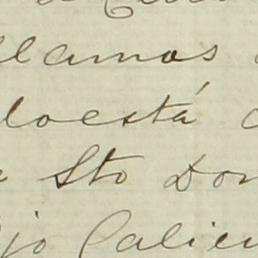 llamos
loestá
Sto Don
jo Calien